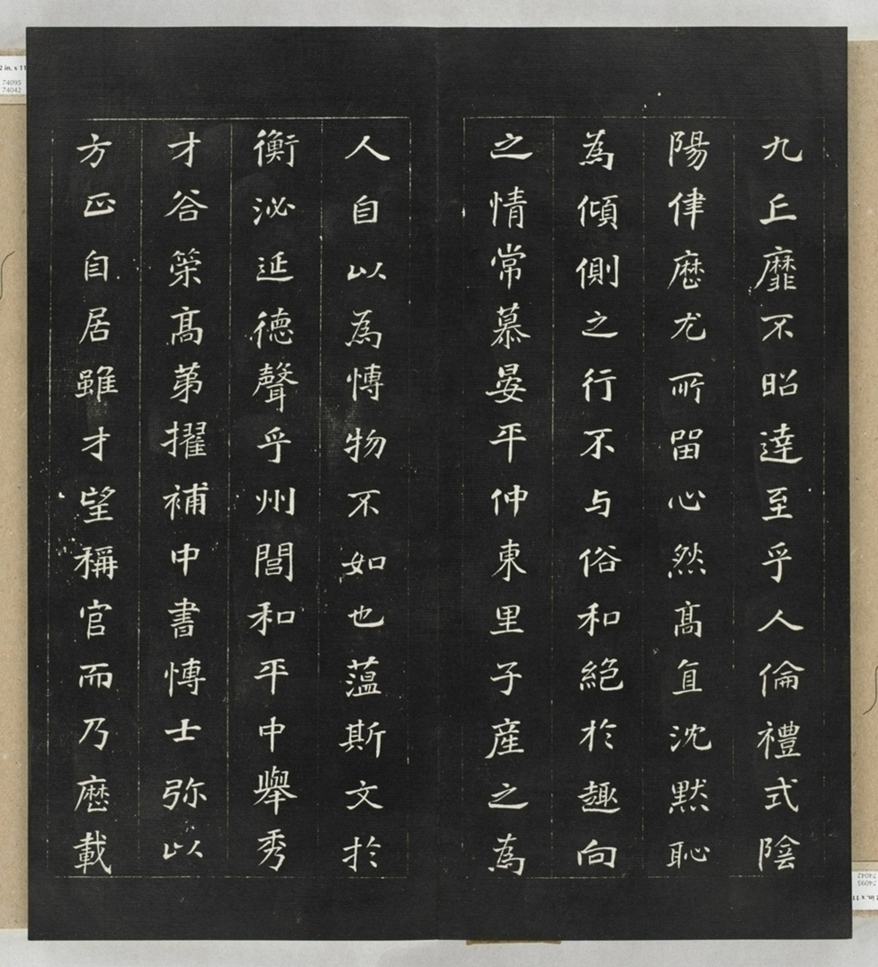 九丘靡不昭達至乎人倫禮式陰
陽律歷尤所留心然髙直沈默恥
為傾側之行不与俗和絕於趣向
之情常慕晏平仲東里子產之為
人自以為博物不如也薀斯文於
衡泌延德聲乎州閭和平中舉秀
才答策髙第擢補中書博士弥以
方正自居雖才望稱官而乃歷載
2 in. x 11
74095
74042
2 in. x 11
74095
74042